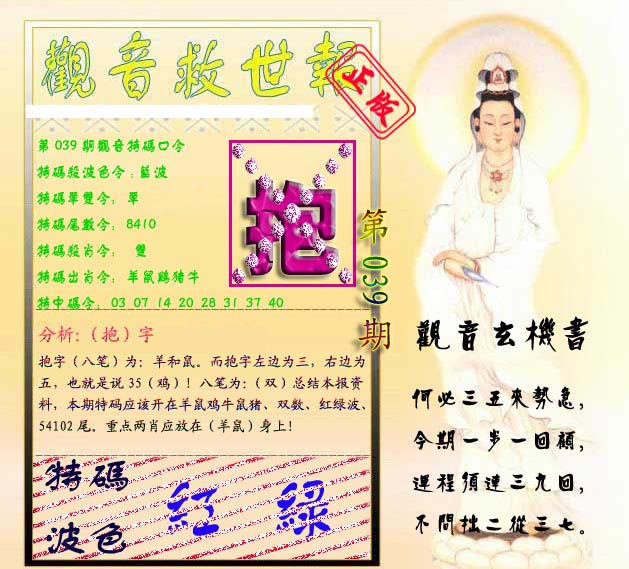 觀音救世報
正版
第039期觀音特碼口令
特碼殺波色令:藍波
特碼單雙令: 單
特碼尾數令: 8410
特碼殺肖令: 雙
特碼出肖令: 羊鼠鷄猪牛
特中碼令: 03 07 14 20 28 31 37 40
抱
第039期
分析:（抱）字
抱字（八笔）为：羊和鼠。而抱字左边为三，右边为
五，也就是说35（鸡）！八笔为：（双）总结本报资
料，本期特码应该开在羊鼠鸡牛鼠猪、双数、红绿波、
54102尾。重点两肖应放在（羊鼠）身上！
特碼
波色
紅 綠
觀音玄機書
何必三五來勢急，
今期一步一回顧，
運程須連三九回，
不問拙二從三七。